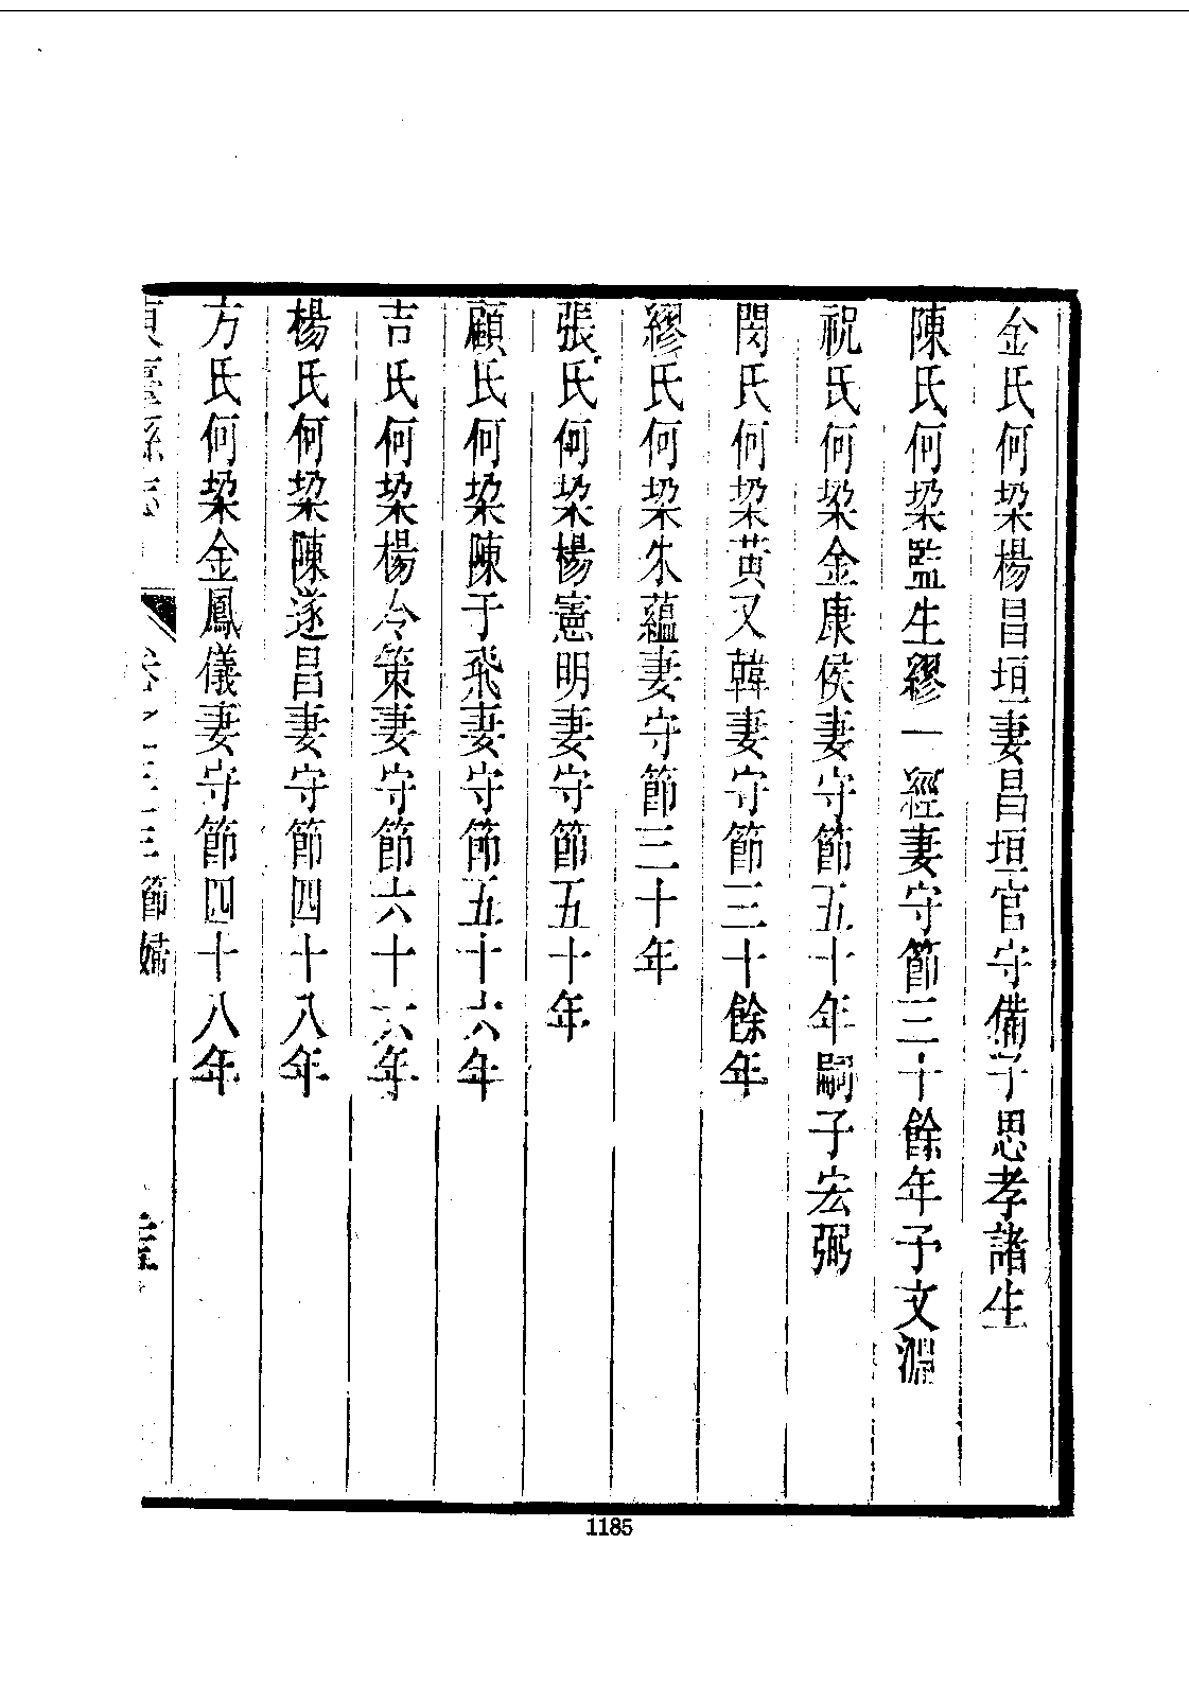 金氏何梁楊昌垣妻昌垣官守備子思孝諸生
陳氏何梁監生繆一經妻守節三十餘年子文淵
祝氏何梁金康侯妻守節五十年嗣子宏弼
閔氏何梁黃又韓妻守節三十餘年
繆氏何梁朱蘊妻守節三十年
張氏何梁楊憲明妻守節五十年
顧氏何梁陳于飛妻守節五十六年
吉氏何梁楊令策妻守節六十六年
楊氏何梁陳遂昌妻守節四十八年
方氏何梁金鳳儀妻守節四十八年
縣志 卷之 三節婦
1185